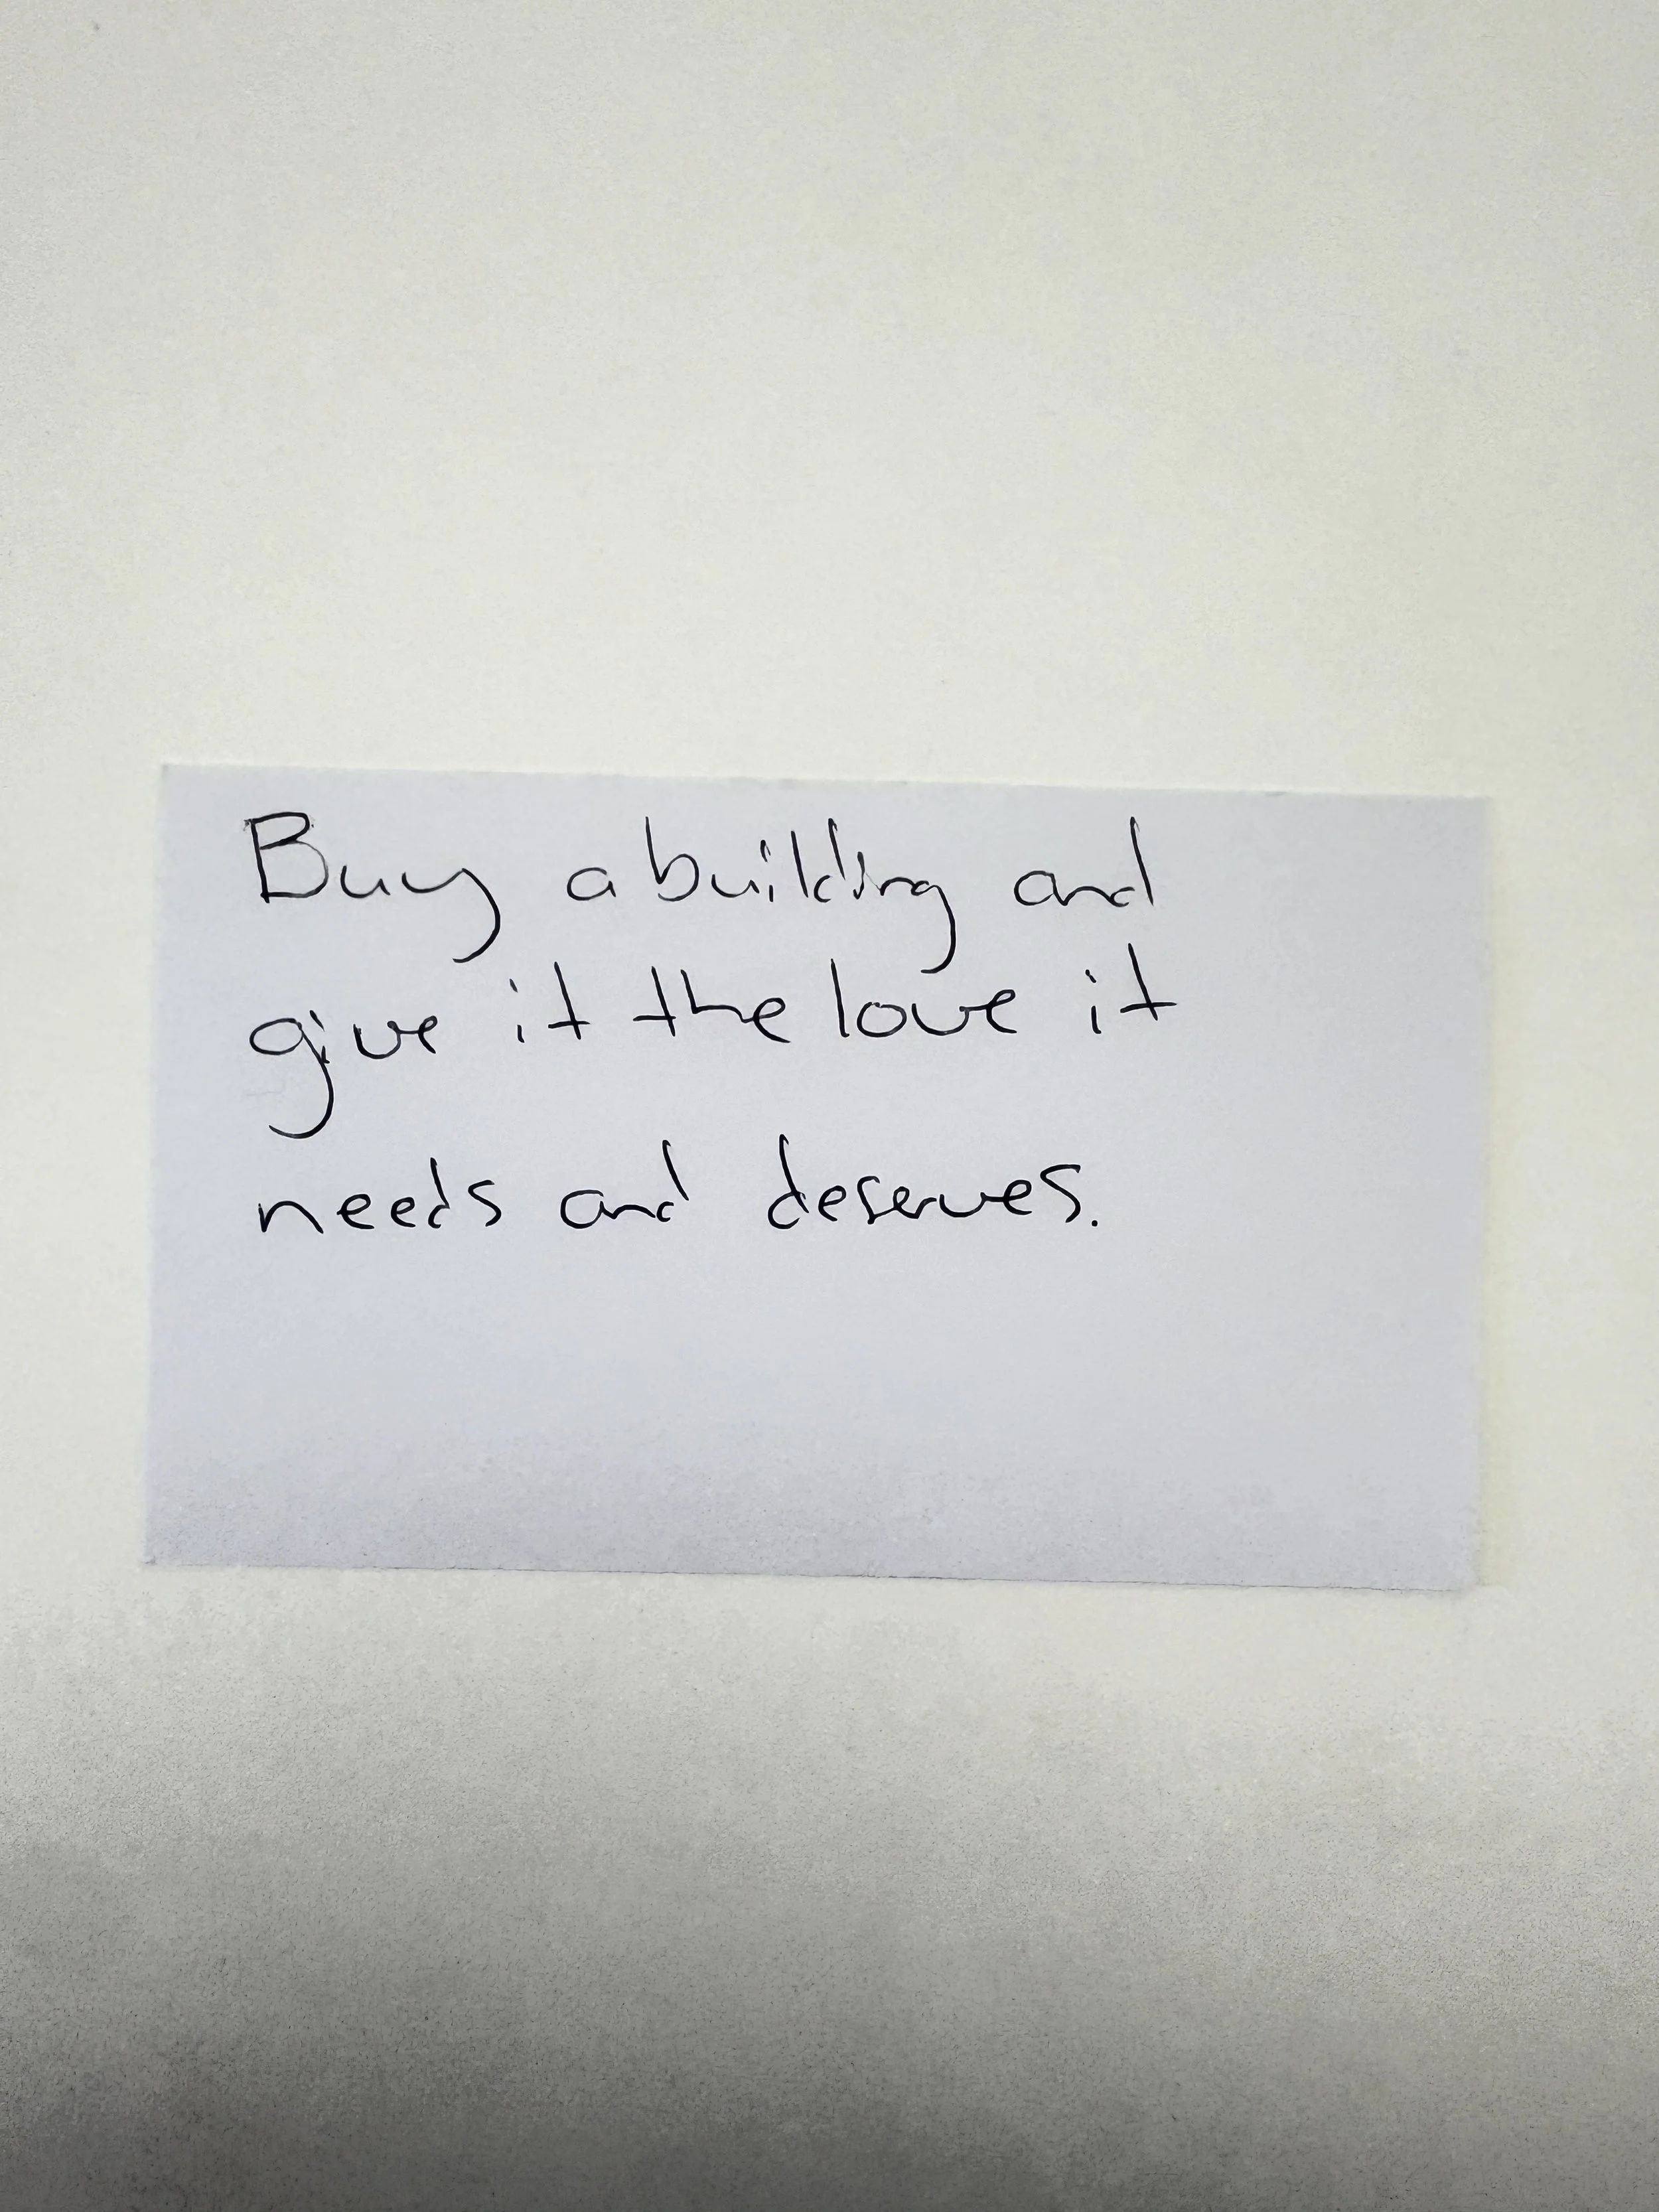 Buy a building and
give it the love it
needs and deserves.